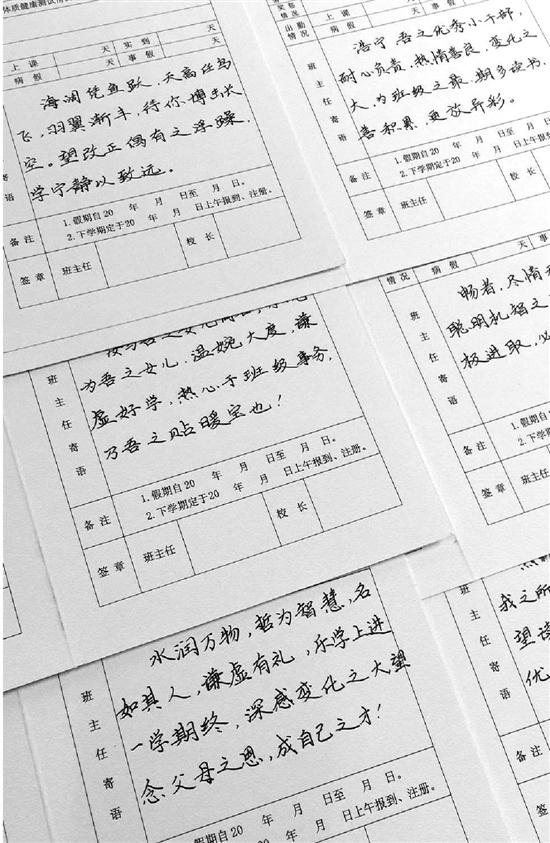 体质健康测试
上课 天 实到 天
病假 天 事假 天
海阔凭鱼跃，天高任鸟
飞，羽翼渐丰，待你搏击长
空。望改正偶有之浮躁，
学宁静以致远。
寄语
备注
1.假期自20 年 月 日至 月 日。
2.下学期定于20 年 月 日上午报到、注册。
签章 班主任 校长
出勤情况
上课 天
病假
浩宁，吾之优秀小干部，
耐心负责，热情善良，变化之
大，为班级之最，期多读书，
善积累，更放异彩。
班主任寄语
备注
1.假期自20 年 月 日至 月 日。
2.下学期定于20 年 月 日上午报到、注册。
签章 班主任 校长
为吾之女儿，温婉大度，谦
虚好学，热心于班级事务，
乃吾之贴暖宝也！
班主任寄语
备注
1.假期自20 年 月 日至 月 日。
2.下学期定于20 年 月 日上午报到、注册。
签章 班主任 校长
情况 病假 天 事
畅者，尽情
聪明机智之
极进取，必
班主任寄语
备注
1.假期自20
2.下学期定于20
签章 班主任
水润万物，哲为智慧，名
如其人，谦虚有礼，乐学上进
一学期终，深感变化之大望
念父母之恩，成自己之才！
班主任寄语
假期自20 年 月 日至 月 日。
年 月 日上午报到、注册。
我之所
望读
优
班主任寄语
备注